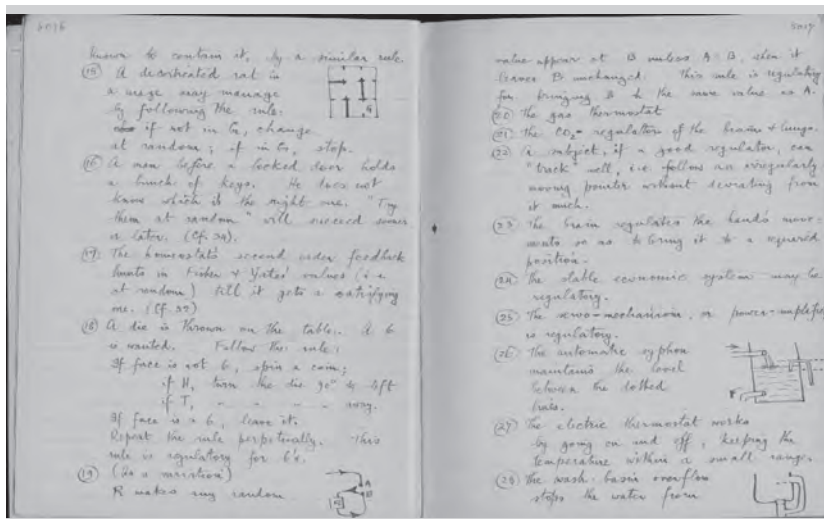 5016
known to contain it, by a similar rule.
(15) A decorticated rat in
a maze may manage
by following the rule:
if not in G, change
at random; if in G, stop.
G
(16) A man before a locked door holds
a bunch of keys. He does not
know which is the right one. "Try
them at random" will succeed sooner
or later. (Cf. 39).
(17) The homeostat's second order feedback
hunts in Fisher & Yates' values (i.e.
at random) till it gets a satisfying
one. (Cf. 37)
(18) A die is thrown on the table. A 6
is wanted. Follow the rule:
If face is not 6, spin a coin;
if H, turn the die 90° to left
if T, " " " " away.
If face is a 6, leave it.
Repeat the rule perpetually. This
rule is regulatory for 6's.
(19) (As a variation)
R makes any random
A
B
R
5017
value appear at B unless A = B, when it
leaves B unchanged. This rule is regulatory
for bringing B to the same value as A.
(20) The gas thermostat
(21) The CO₂- regulators of the brain & lungs.
(22) A subject, if a good regulator, can
"track" well, i.e. follow an irregularly
moving pointer without deviating from
it much.
(23) The brain regulates the hand's move-
ments so as to bring it to a required
position.
(24) The stable economic system may be
regulatory.
(25) The servo-mechanism, or power-amplifier
is regulatory.
(26) The automatic syphon
maintains the level
between the dotted
lines.
(27) The electric thermostat works
by going on and off, keeping the
temperature within a small range.
(28) The wash-basin overflow
stops the water from